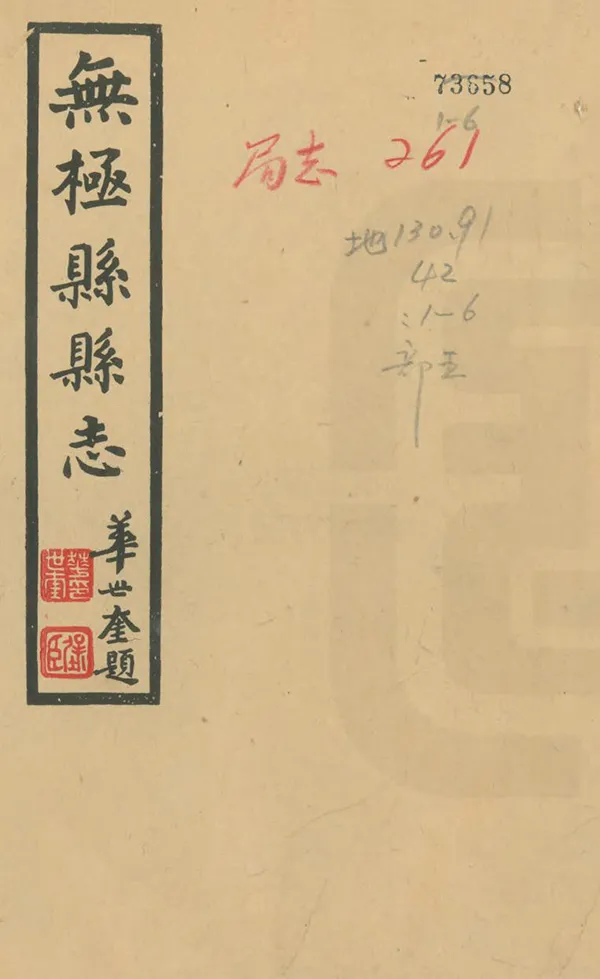 無極縣縣志
華世奎題
73658
1-6
局志 261
地130.91
42
:1-6
部